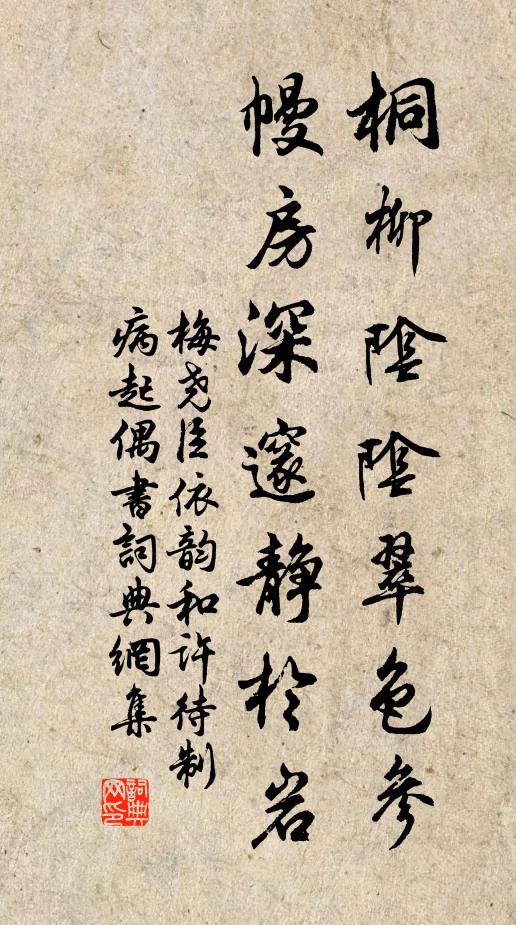 桐柳陰陰翠色參
幔房深邃靜於岩
梅堯臣依韵和許待制
病起偶書詞典網集
詞典網印